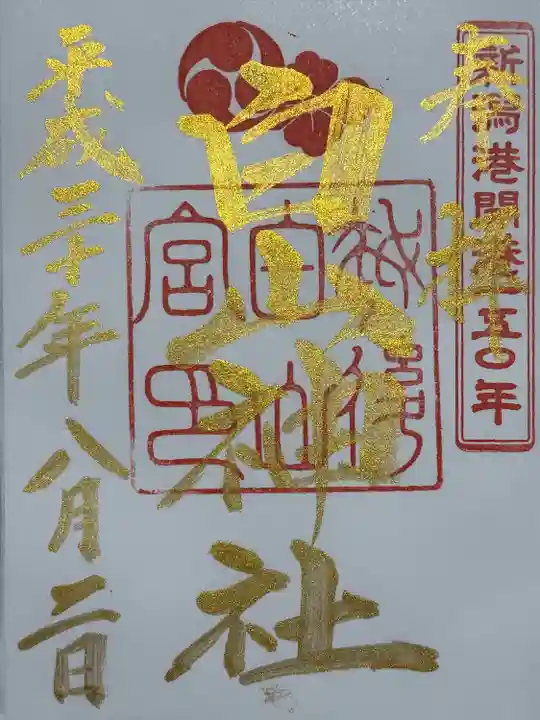 新潟港開港一五〇年
奉拝
白山神社
越後白山宮印
平成三十年八月二日